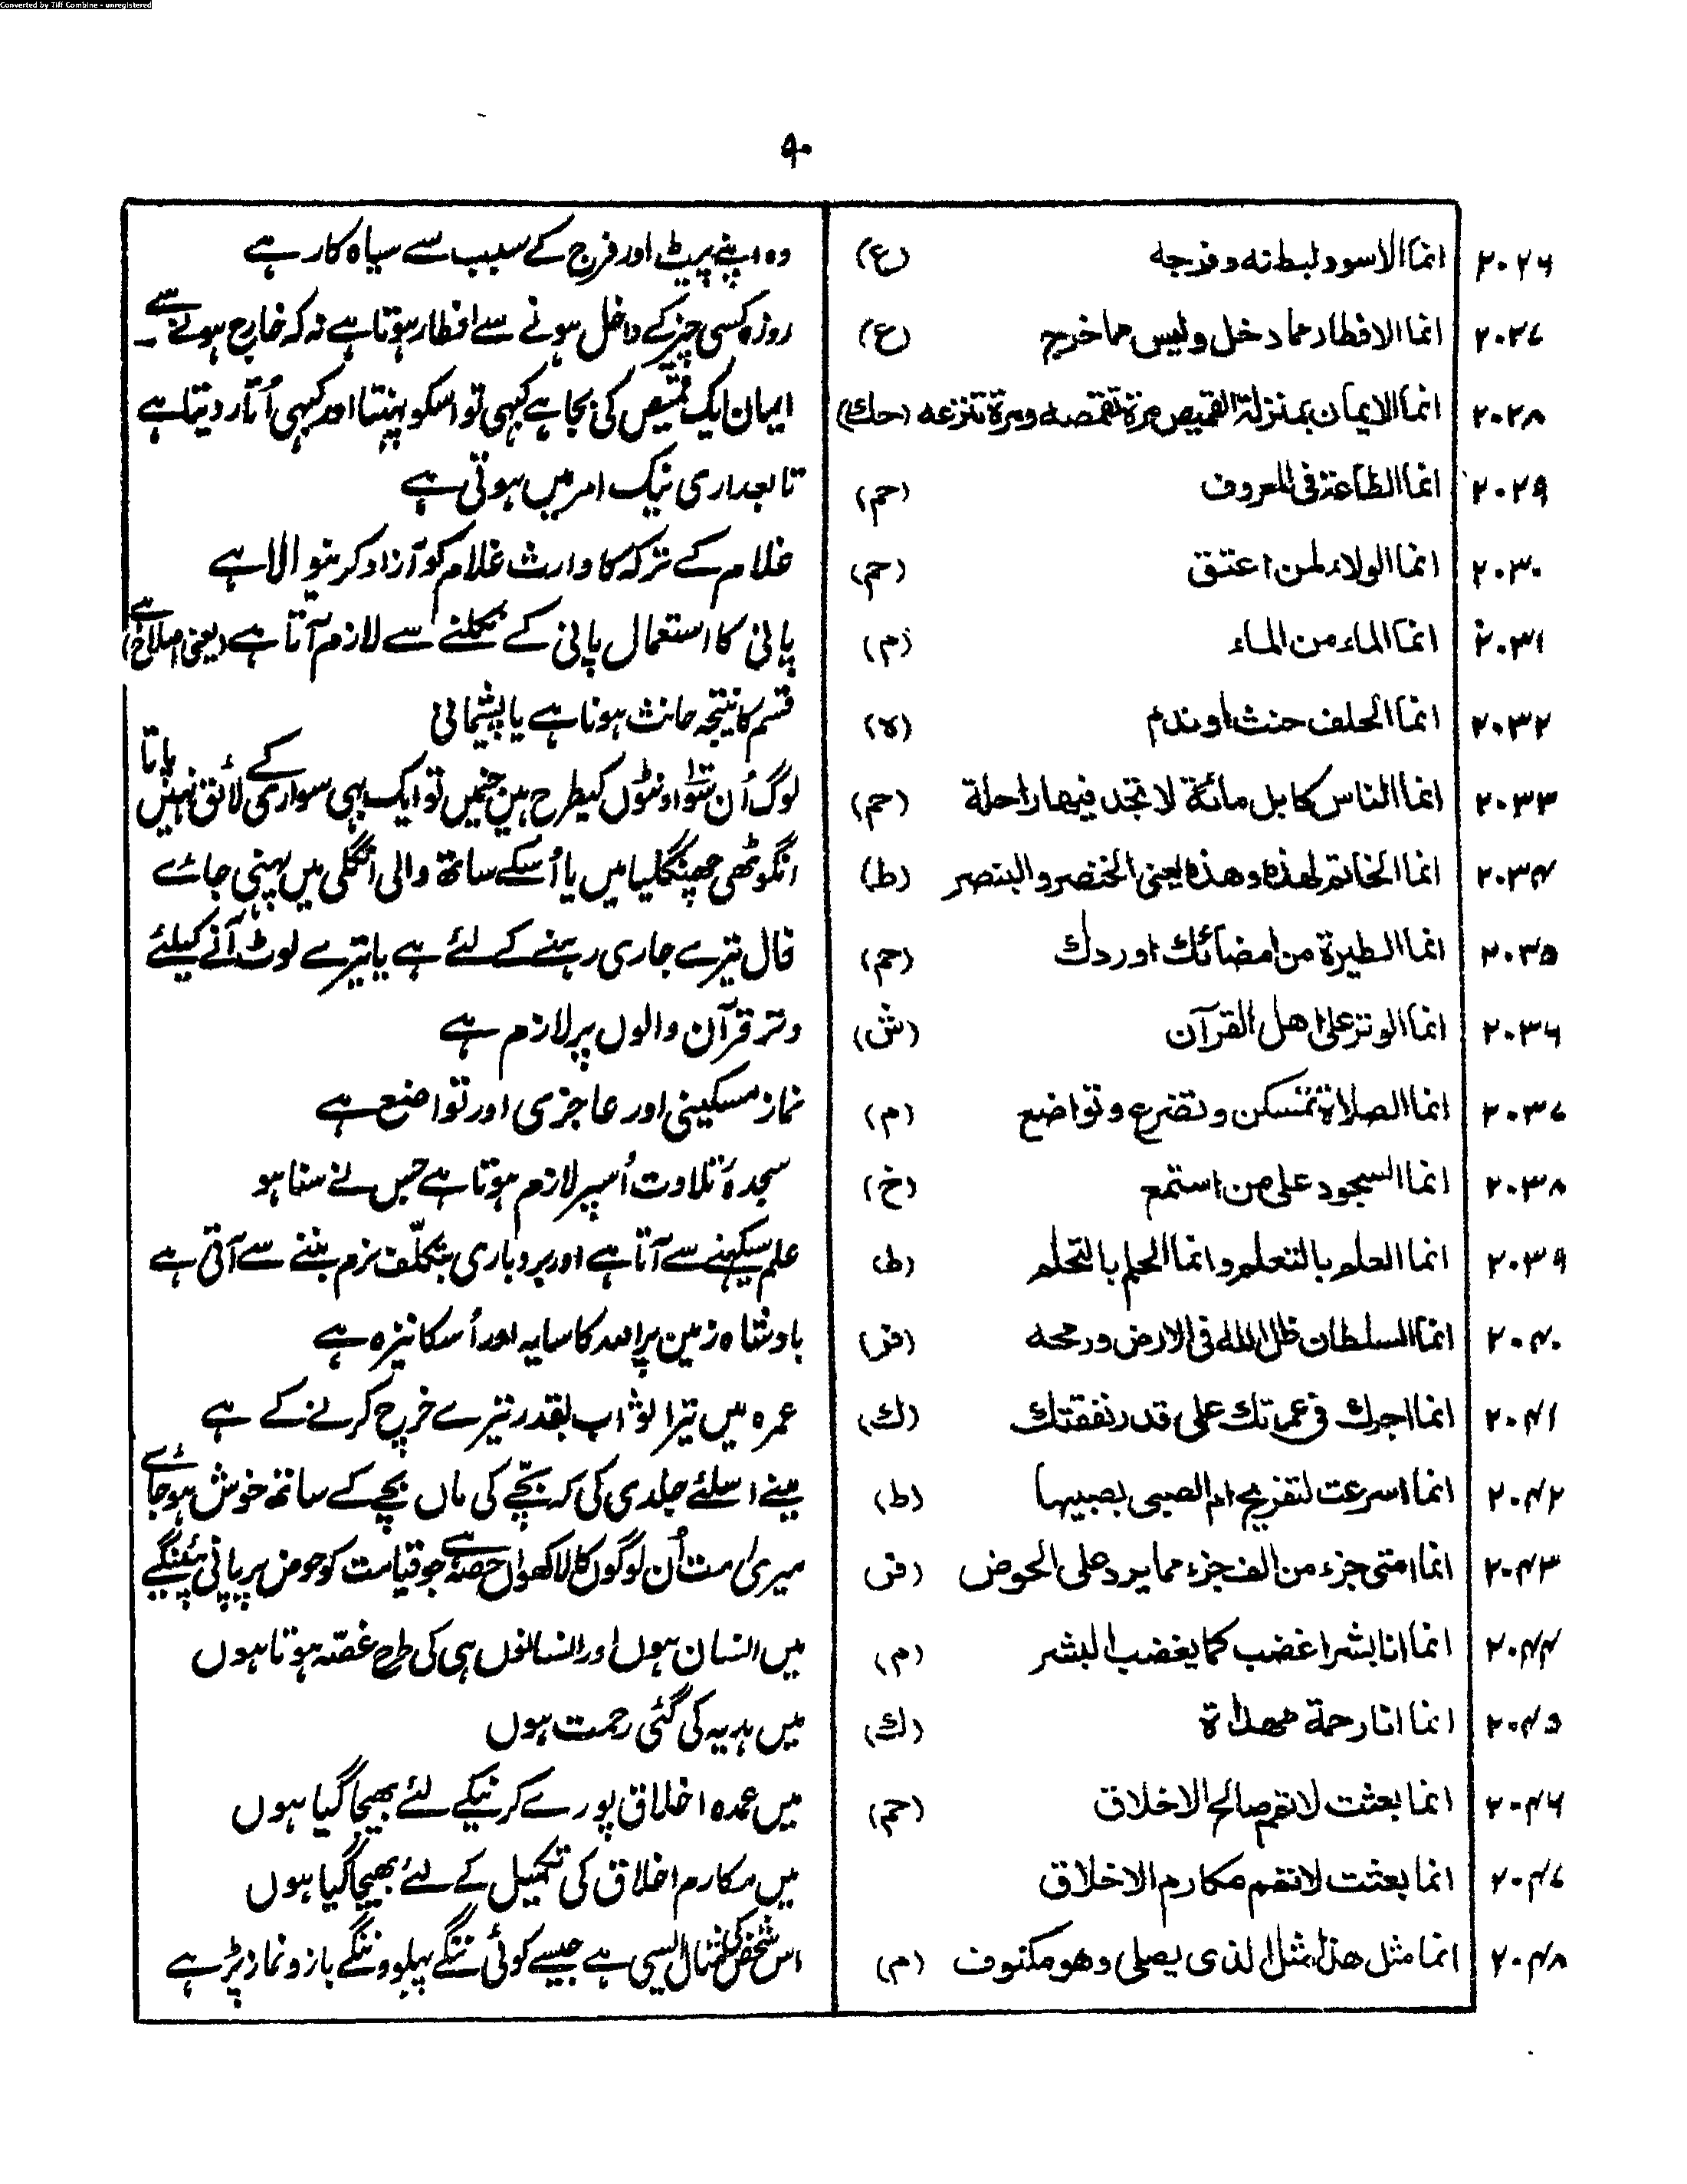 Converted by Tiff Combine - unregistered
۹۰
۲۰۲۶ انما الاسود لبطنه و فرجه (ع) وہ اپنے پیٹ اور فرج کے سبب سے سیاہ کار ہے
۲۰۲۷ انما الافطار مما دخل و لیس مما خرج (ع) روزہ کسی چیز کے داخل ہونے سے افطار ہوتا ہے نہ کہ خارج ہونے سے۔
۲۰۲۸ انما الایمان بمنزلة القمیص مرة تقمصه و مرة تنزعه (حك) ایمان ایک قمیص کی بجا ہے کبھی تو اسکو پہنتا اور کبھی اُتار دیتا ہے
۲۰۲۹ انما الطاعة فی المعروف (حم) تابعداری نیک امر میں ہوتی ہے
۲۰۳۰ انما الولاء لمن اعتق (حم) غلام کے ترکہ کا وارث غلام کو آزاد کرنیوالا ہے
۲۰۳۱ انما الماء من الماء (م) پانی کا استعمال پانی کے نکلنے سے لازم آتا ہے
۲۰۳۲ انما الحلف حنث او ندم (ہ) قسم کا نتیجہ حانث ہونا ہے یا پشیمانی
۲۰۳۳ انما الناس کابل مائة لا تجد فیها راحلة (حم) لوگ اُن سَو اونٹوں کیطرح ہیں جنمیں تو ایک بھی سواری کے لائق نہیں پاتا
۲۰۳۴ انما الخاتم لهذه و هذه یعنی الخنصر و البنصر (ط) انگوٹھی چھنگلیا میں یا اُسکے ساتھ والی انگلی میں پہنی جائے
۲۰۳۵ انما الطیرة من امضائك او ردك (حم) فال تیرے جاری رہنے کے لئے ہے یا تیرے لوٹ آنے کیلئے
۲۰۳۶ انما الوتر علی اهل القرآن (ش) وتر قرآن والوں پر لازم ہے
۲۰۳۷ انما الصلاة تمسکن و تضرع و تواضع (م) نماز مسکینی اور عاجزی اور تواضع ہے
۲۰۳۸ انما السجود علی من استمع (خ) سجدۂ تلاوت اُسپر لازم ہوتا ہے جس نے سنا ہو
۲۰۳۹ انما العلم بالتعلم و انما الحلم بالتحلم (ط) علم سیکھنے سے آتا ہے اور بردباری بتکلّف نرم بننے سے آتی ہے
۲۰۴۰ انما السلطان ظل الله فی الارض و رمحه (فر) بادشاہ زمین پر اللہ کا سایہ اور اُسکا نیزہ ہے
۲۰۴۱ انما اجرك فی عمرتك علی قدر نفقتك (ك) عمرہ میں تیرا ثواب بقدر تیرے خرچ کرنے کے ہے
۲۰۴۲ انما اسرعت لتفریح ام الصبی بصبیها (ط) مینے اسلئے جلدی کی کہ بچّے کی ماں بچے کے ساتھ خوش ہو جائے
۲۰۴۳ انما امتی جزء من الف جزء مما یرد علی الحوض (فر) میری امت اُن لوگوں کا لاکھواں حصّہ ہے جو قیامت کو حوض پر پانی پئینگے
۲۰۴۴ انما انا بشر اغضب کما یغضب البشر (م) میں انسان ہوں اور انسانوں ہی کی طرح غصّہ ہوتا ہوں
۲۰۴۵ انما انا رحمة مهداة (ك) میں ہدیہ کی گئی رحمت ہوں
۲۰۴۶ انما بعثت لاتمم صالح الاخلاق (حم) میں عمدہ اخلاق پورے کرنیکے لئے بھیجا گیا ہوں
۲۰۴۷ انما بعثت لاتمم مکارم الاخلاق میں مکارم اخلاق کی تکمیل کے لئے بھیجا گیا ہوں
۲۰۴۸ انما مثل هذا مثل الذی یصلی و هو مکتوف (م) اس شخص کی مثال ایسی ہے جیسے کوئی ننگے پہلو و ننگے بازو نماز پڑہے